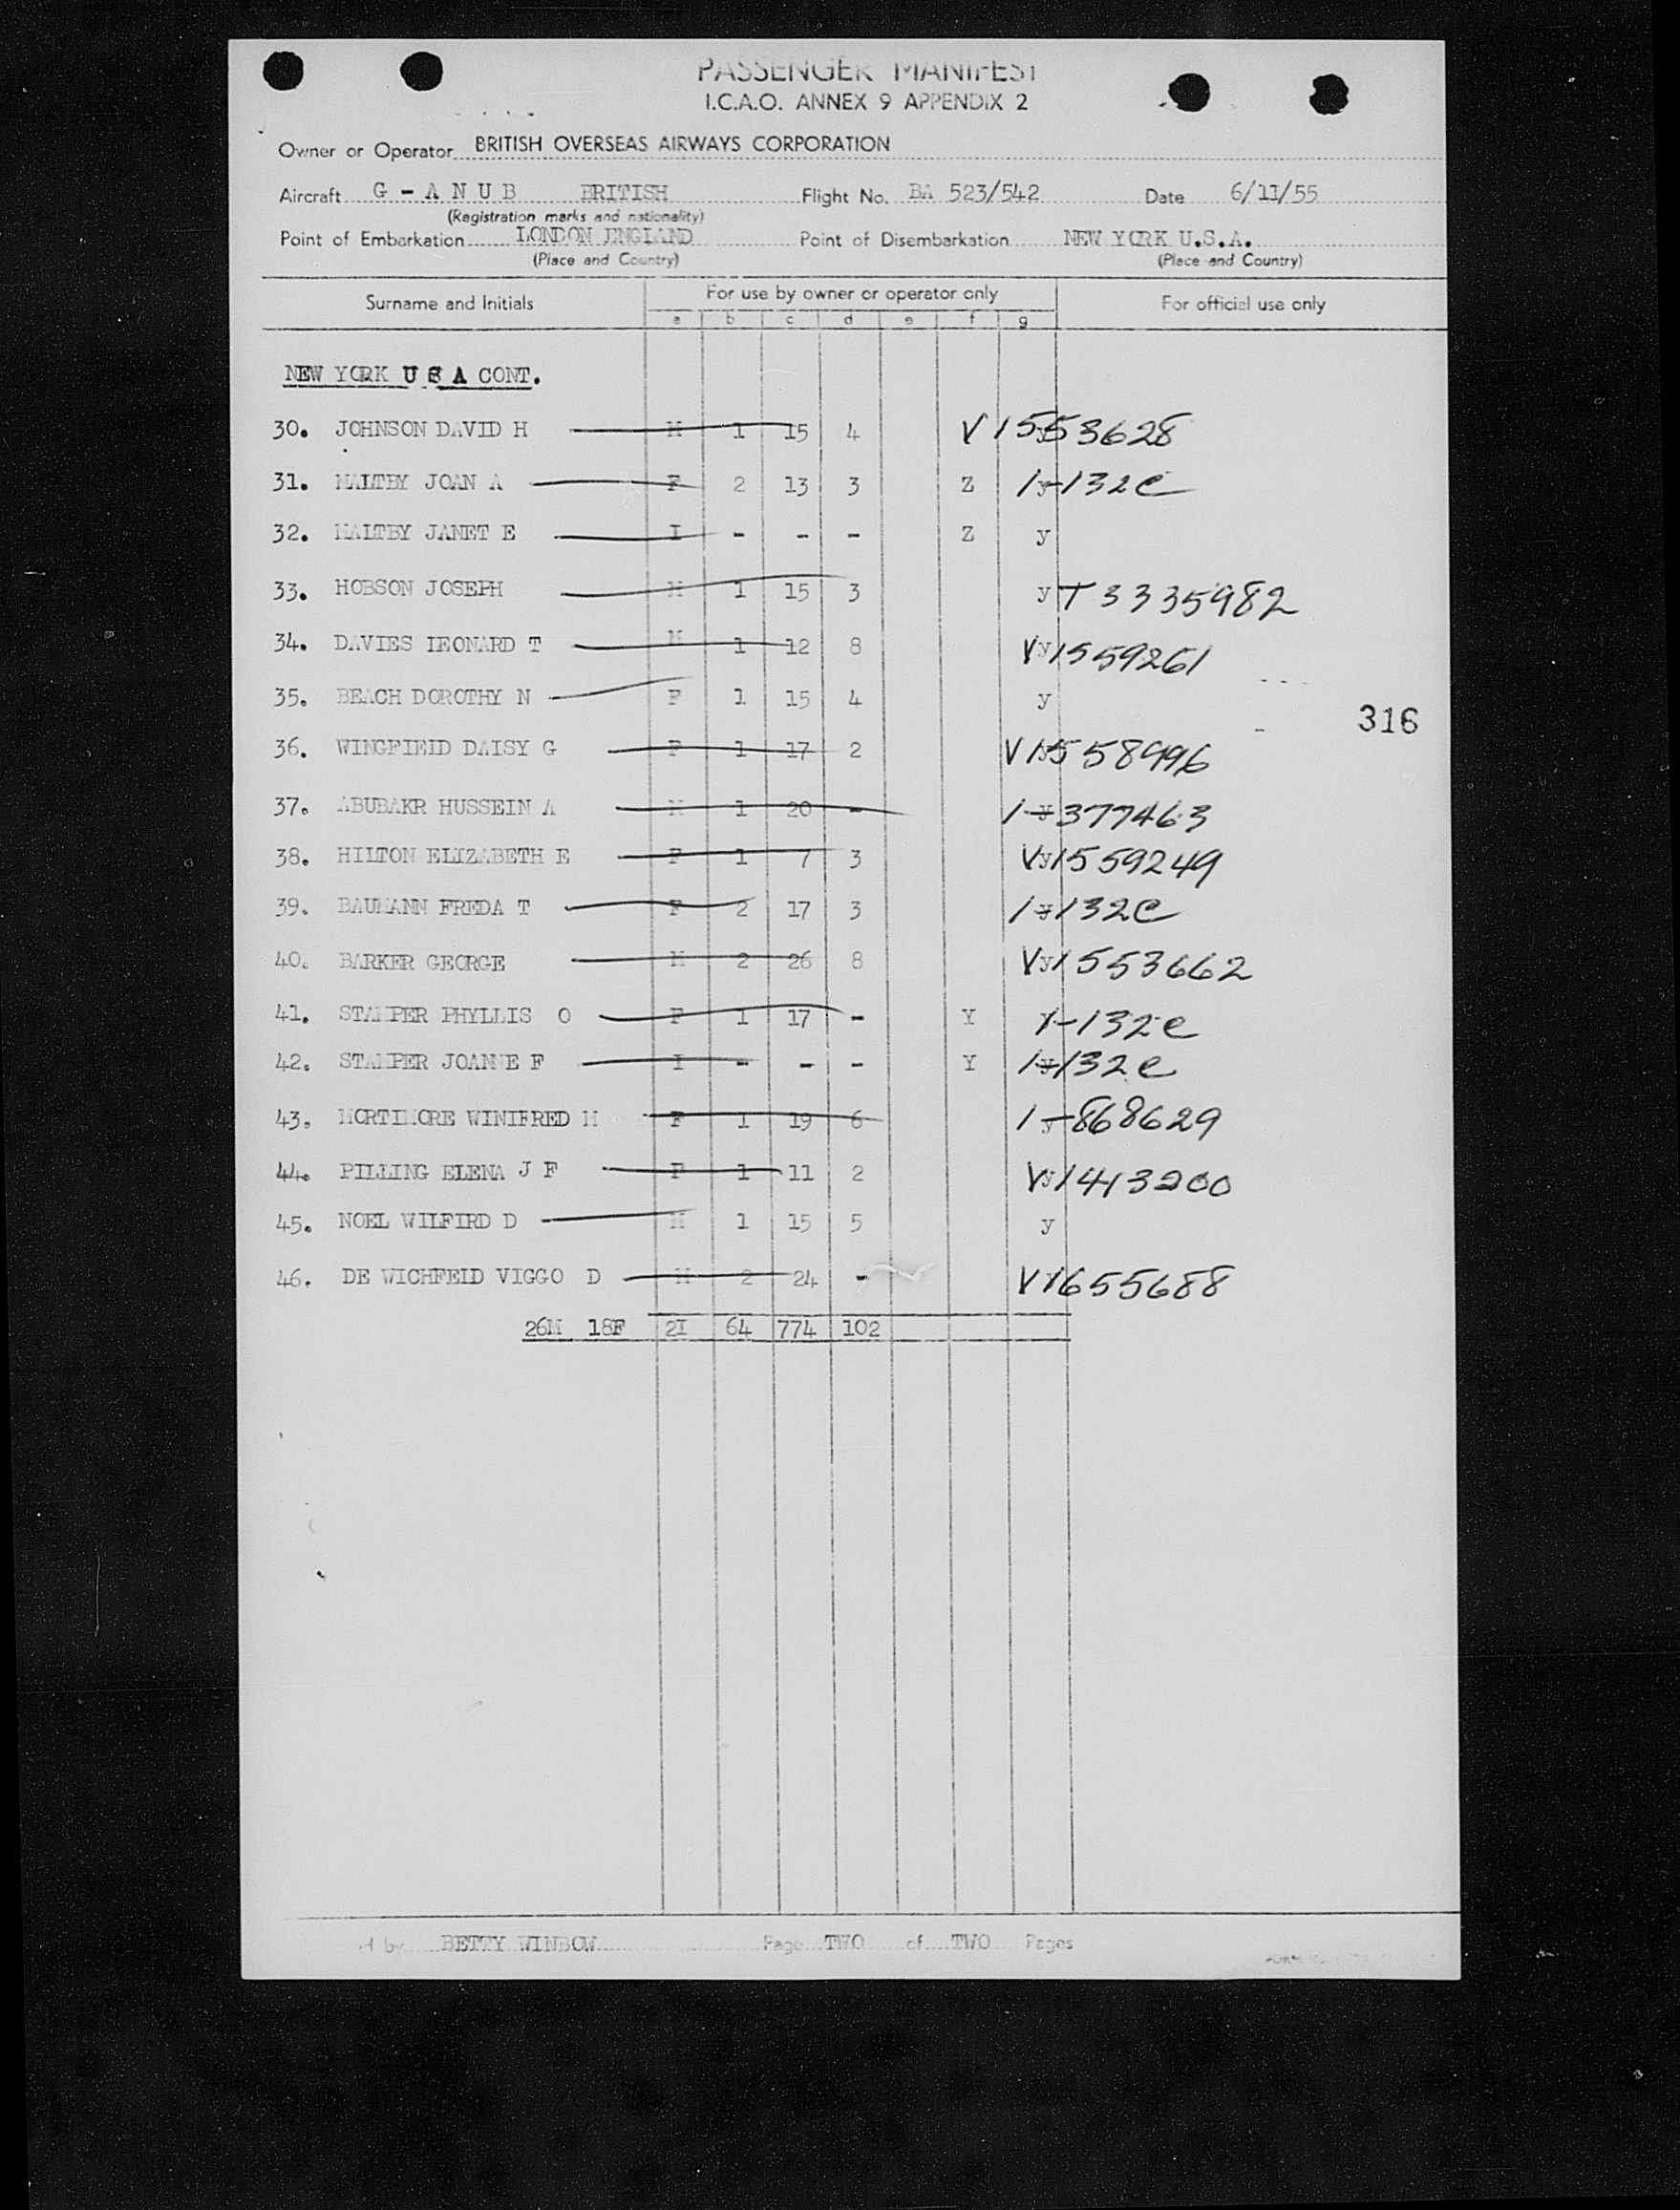 PASSENGER MANIFEST
I.C.A.O. ANNEX 9 APPENDIX 2
Owner or Operator BRITISH OVERSEAS AIRWAYS CORPORATION
Aircraft G - A N U B BRITISH Flight No. BA 523/542 Date 6/11/55
(Registration marks and nationality)
Point of Embarkation LONDON ENGLAND Point of Disembarkation NEW YORK U.S.A.
(Place and Country) (Place and Country)
Surname and Initials For use by owner or operator only For official use only
a b c d e f g
NEW YORK U S A CONT.
30. JOHNSON DAVID H M 1 15 4 y V1553628
31. MALTBY JOAN A F 2 13 3 Z y 1-132C
32. MALTBY JANET E I - - - Z y
33. HOBSON JOSEPH M 1 15 3 y T3335982
34. DAVIES LEONARD T M 1 12 8 y V1559261
35. BEACH DOROTHY N F 1 15 4 y
316
36. WINGFIELD DAISY G F 1 17 2 y V1558996
37. ABUBAKR HUSSEIN A M 1 20 - y 1-377463
38. HILTON ELIZABETH E F 1 7 3 y V1559249
39. BAUMANN FREDA T F 2 17 3 y 1-132C
40. BARKER GEORGE M 2 26 8 y V1553662
41. STAMPER PHYLLIS O F 1 17 - Y y 1-132C
42. STAMPER JOANNE F I - - - Y y 1-132C
43. MORTIMORE WINIFRED M F 1 19 6 y 1-868629
44. PILLING ELENA J F F 1 11 2 y V1413200
45. NOEL WILFIRD D M 1 15 5 y
46. DE WICHFELD VIGGO D M 2 24 - y V1655688
26M 18F 2I 64 774 102
by BETTY WINBOW Page TWO of TWO Pages